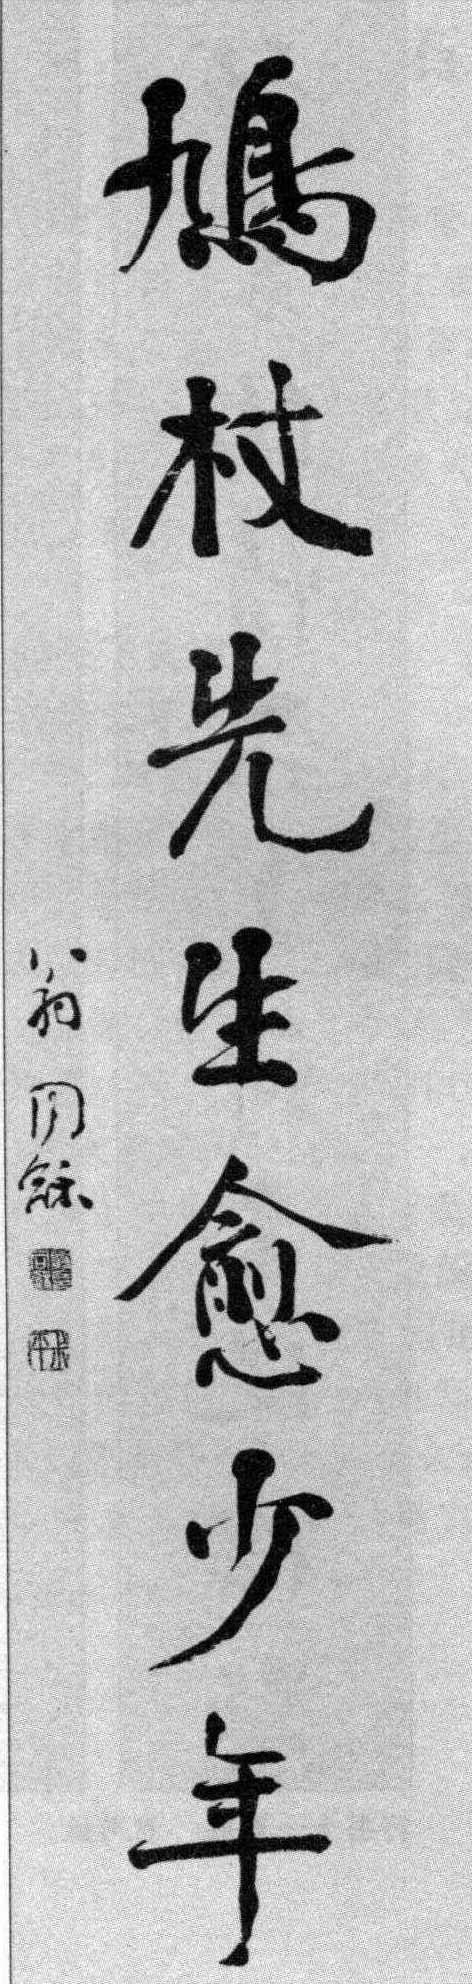 鳩杖先生愈少年
翁同龢